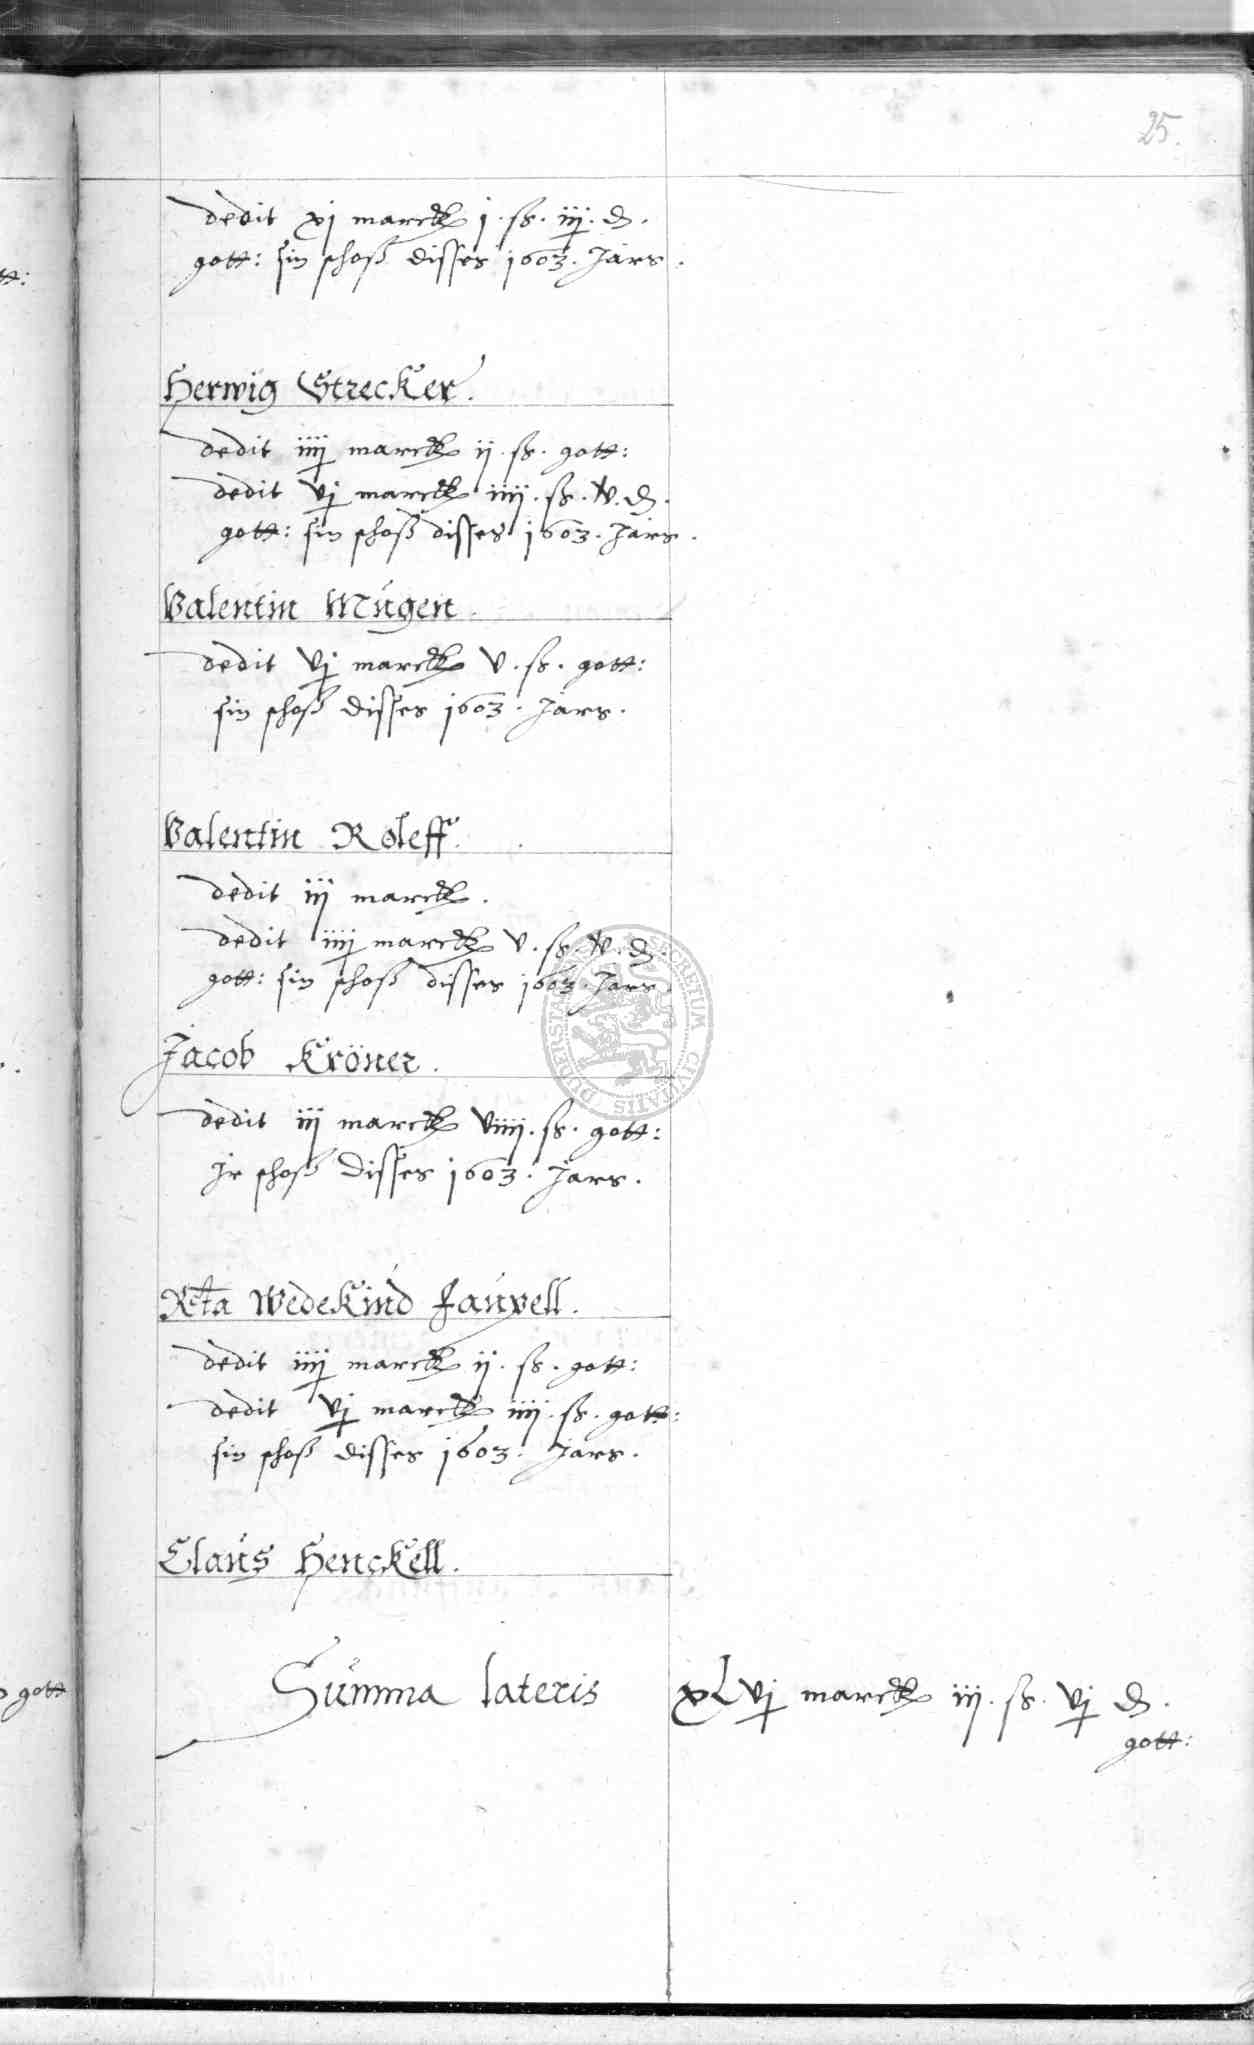 25.
dedit xj marck j. ß. iij. ₰.
gott: sin schoß disses 1603. Jars.
Herwig Strecker.
dedit iiij marck ij. ß. gott:
dedit vj marck iiij. ß. v. ₰.
gott: sin schoß disses 1603. Jars.
Valentin Mügen.
dedit vj marck v. ß. gott:
sin schoß disses 1603. Jars.
Valentin Roleff.
dedit iij marck.
dedit iiij marck v. ß. v. ₰.
gott: sin schoß disses 1603. Jars.
Jacob Kröner.
dedit iij marck viiij. ß. gott:
Jr schoß disses 1603. Jars.
Rcta Wedekind Jauxell.
dedit iiij marck ij. ß. gott:
dedit vj marck iiij. ß. gott:
sin schoß disses 1603. Jars.
Claus Henckell.
Summa lateris xLvj marck iij. ß. vj ₰.
gott:
gott
SECRETUM CIVITATIS DUDERSTADENSIS